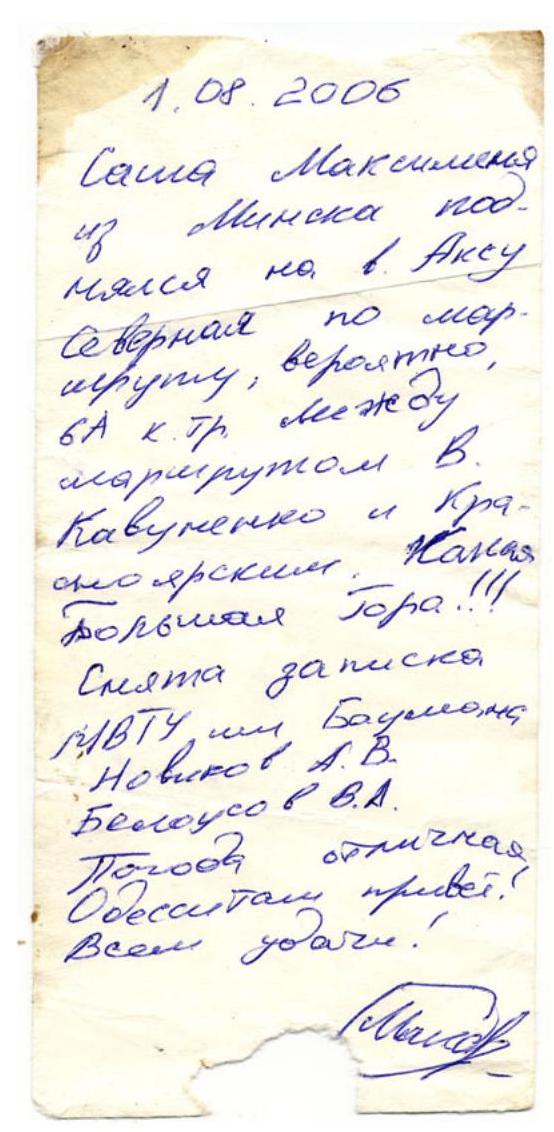 1.08.2006
Саша Максименя
из Минска под-
нялся на в. Аксу
Северная по мар-
шруту, вероятно,
6А к.тр. между
маршрутом В.
Кавуненко и Кра-
сноярским. Какая
Большая Гора!!!
Снята записка
МВТУ им Баумана
Новиков А.В.
Белоусов В.А.
Погода отличная
Одесситам привет!
Всем удачи!